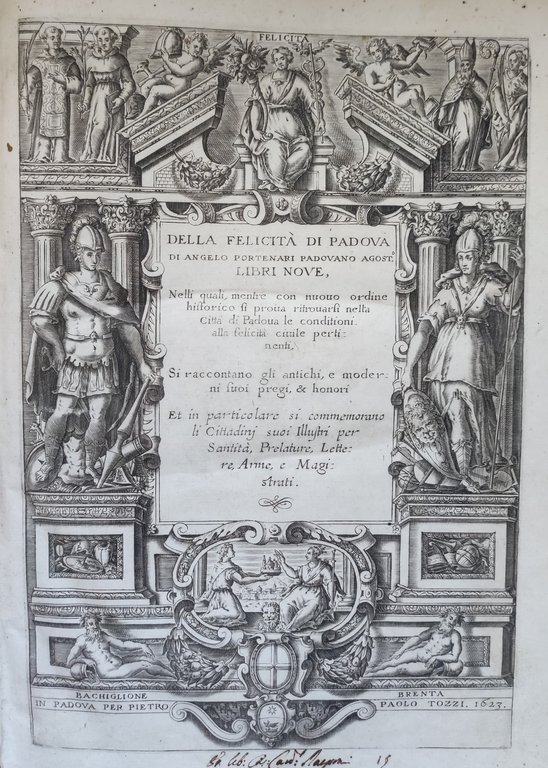 FELICITÀ
DELLA FELICITÀ DI PADOVA
DI ANGELO PORTENARI PADOVANO AGOST.º
LIBRI NOVE,
Nelli quali, mentre con nuouo ordine
historico si proua ritrouarsi nella
Città di Padoua le conditioni
alla felicità ciuile perti-
nenti,
Si raccontano gli antichi, e moder-
ni suoi pregi, & honori
Et in particolare si commemorano
li Cittadinj suoi Illustri per
Santità, Prelature, Lette-
re, Arme, e Magi-
strati.
BACHIGLIONE
BRENTA
IN PADOVA PER PIETRO PAOLO TOZZI. 1623.
15